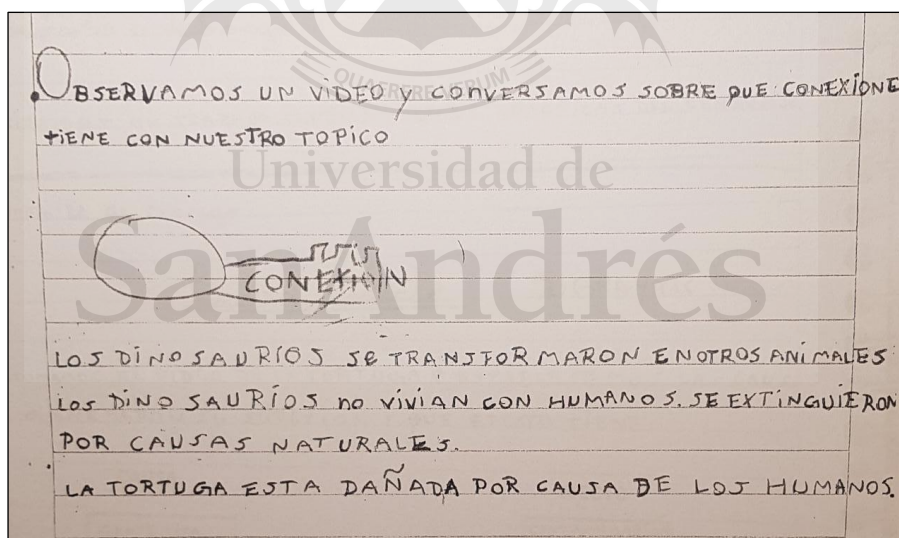 OBSERVAMOS UN ViDEO Y CONVERSAMOS SOBRE QUE CONEXIONE
tiENE CON NUESTRO TOPICO
QUAERERE VERUM
Universidad de
SanAndrés
CONEXION
LOS DINOSAURIOS SE TRANSFORMARON EN OTROS ANIMALES
LOS DINOSAURIOS no ViViAN CON HUMANOS. SE EXTINGUIERON
POR CAUSAS NATURALES.
LA TORTUGA ESTA DAÑADA POR CAUSA DE LOS HUMANOS.